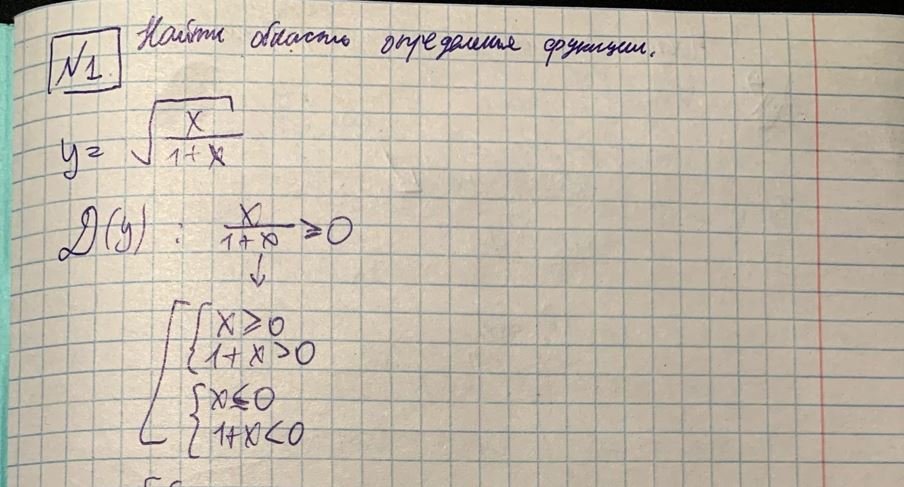 N1.
Найти область определения функции.
y = √(x/(1+x))
D(y) : x/(1+x) ≥ 0
↓
[ { x ≥ 0
1+x > 0
{ x ≤ 0
1+x < 0